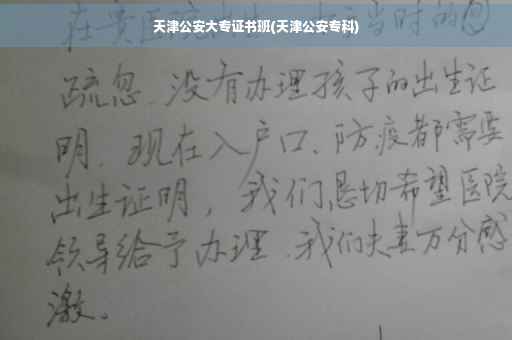 天津公安大专证书班(天津公安专科)
当时的
疏忽、没有办理孩子的出生证
明、现在入户口、防疫都需要
出生证明，我们恳切希望医院
领导给予办理、我们夫妻万分感
激。